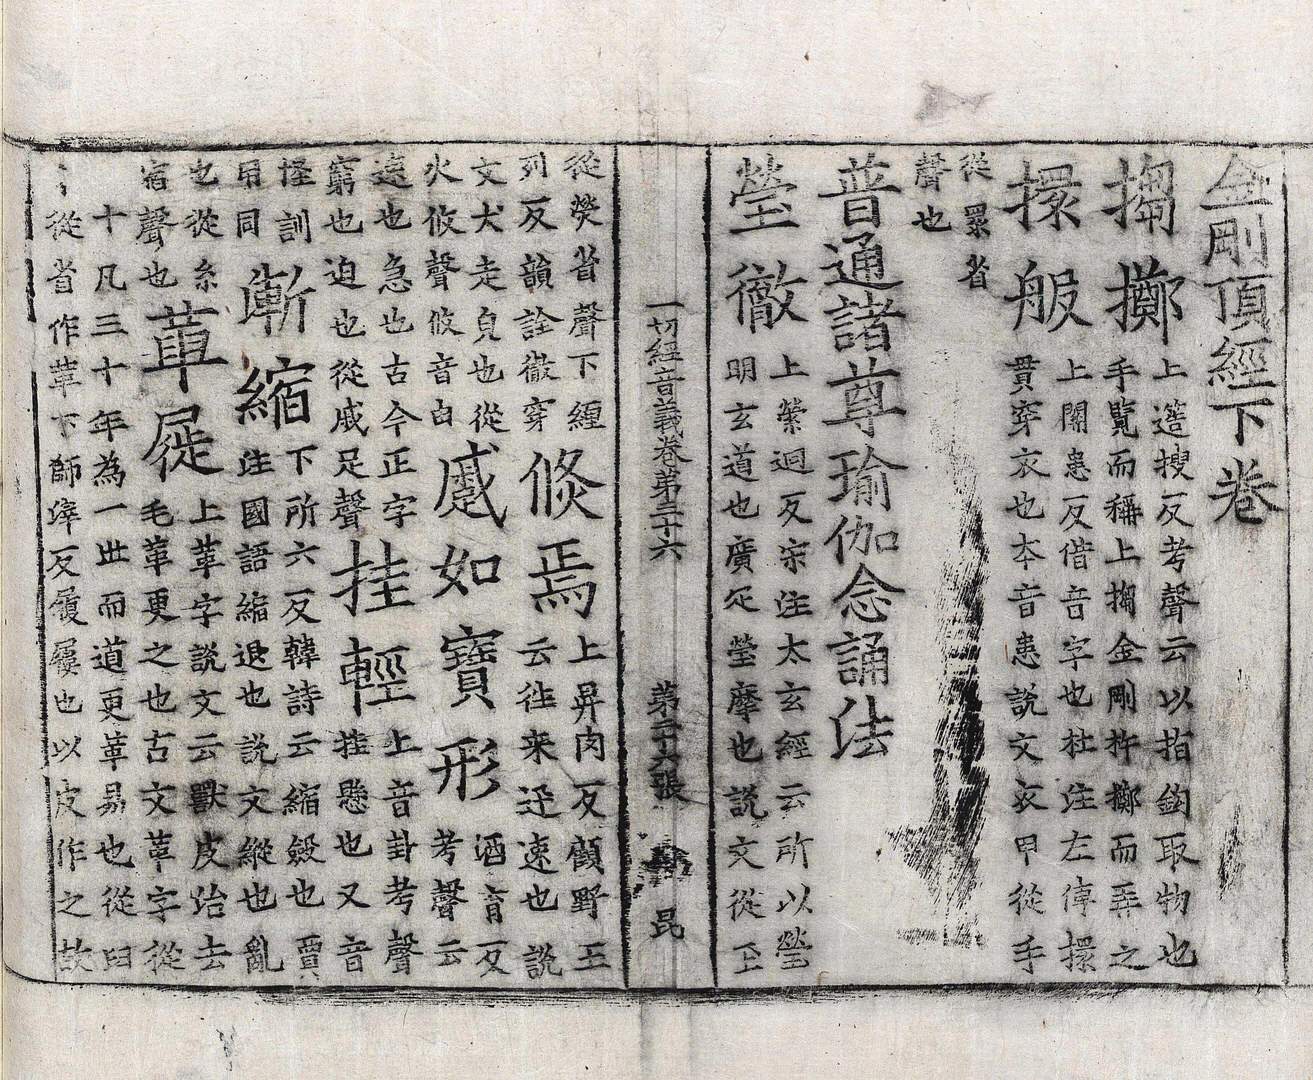 金剛頂經下卷
搊擲上篘搜反考聲云以指鉤取物也
手覽而稱上搊金剛杵擲而弄之
擐服上關患反借音字也杜注左傳擐
貫穿衣也本音患說文衣甲從手
從睘省
聲也
普通諸尊瑜伽念誦法
瑩徹上縈迥反宋注太玄經云所以瑩
明玄道也廣疋瑩摩也說文從玉
一切經音義卷第三十六 第二十六張 昆
從熒省聲下纏
列反韻詮徹穿
倐焉上昇肉反顧野王
云徃来迅速也說
文犬走皃也從
火攸聲攸音由
蹙如寶形酒育反
考聲云
遠也急也古今正字
窮也迫也從戚足聲
挂輕上音卦考聲
挂懸也又音
怪訓
用同
慚縮下所六反韓詩云縮斂也賈
注國語縮退也說文縱也亂
也從糸
宿聲也
革屣上革字說文云獸皮治去
毛革更之也古文革字從
十凡三十年為一丗而道更革易也從臼
從省作革下師滓反履屨也以皮作之故